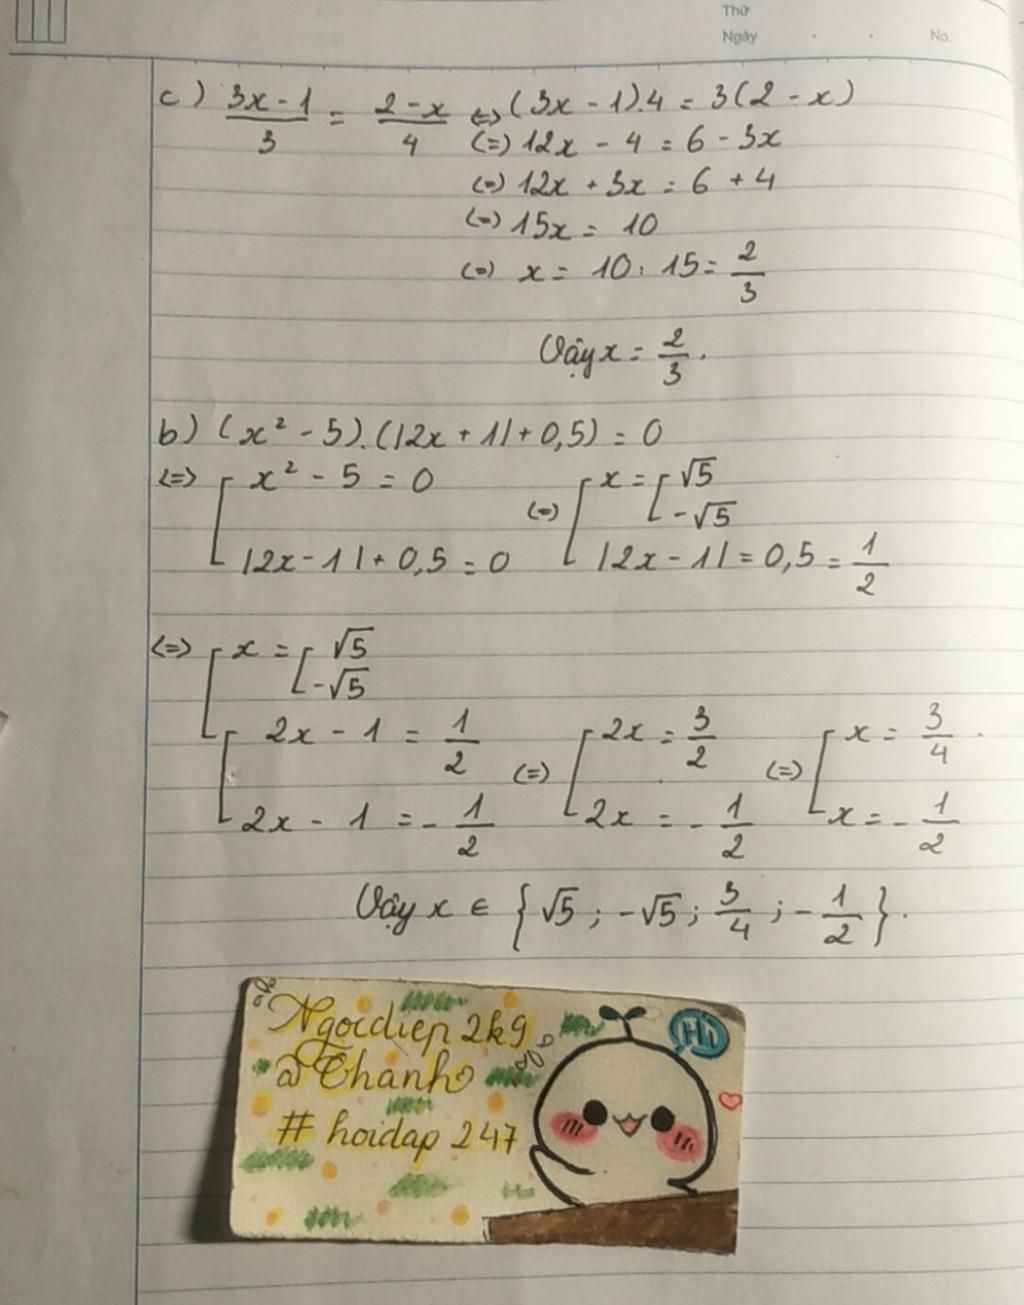 Thứ
Ngày . . No.
c) \frac{3x-1}{3} = \frac{2-x}{4} <=> (3x - 1).4 = 3(2 - x)
(=) 12x - 4 = 6 - 3x
(=) 12x + 3x = 6 + 4
(=) 15x = 10
(=) x = 10 : 15 = \frac{2}{3}
Vậy x = \frac{2}{3}.
b) (x² - 5).(|2x + 1| + 0,5) = 0
<=> [ x² - 5 = 0 (=) [ x = [ √5
-√5
|2x - 1| + 0,5 = 0 |2x - 1| = 0,5 = \frac{1}{2}
<=> [ x = [ √5
-√5
[ 2x - 1 = \frac{1}{2} (=) [ 2x = \frac{3}{2} (=) [ x = \frac{3}{4}.
2x - 1 = -\frac{1}{2} 2x = -\frac{1}{2} x = -\frac{1}{2}
Vậy x ∈ { √5 ; -√5 ; \frac{3}{4} ; -\frac{1}{2} }.
Ngocdiep 2k9
Hi
@ Thanh
# hoidap 247